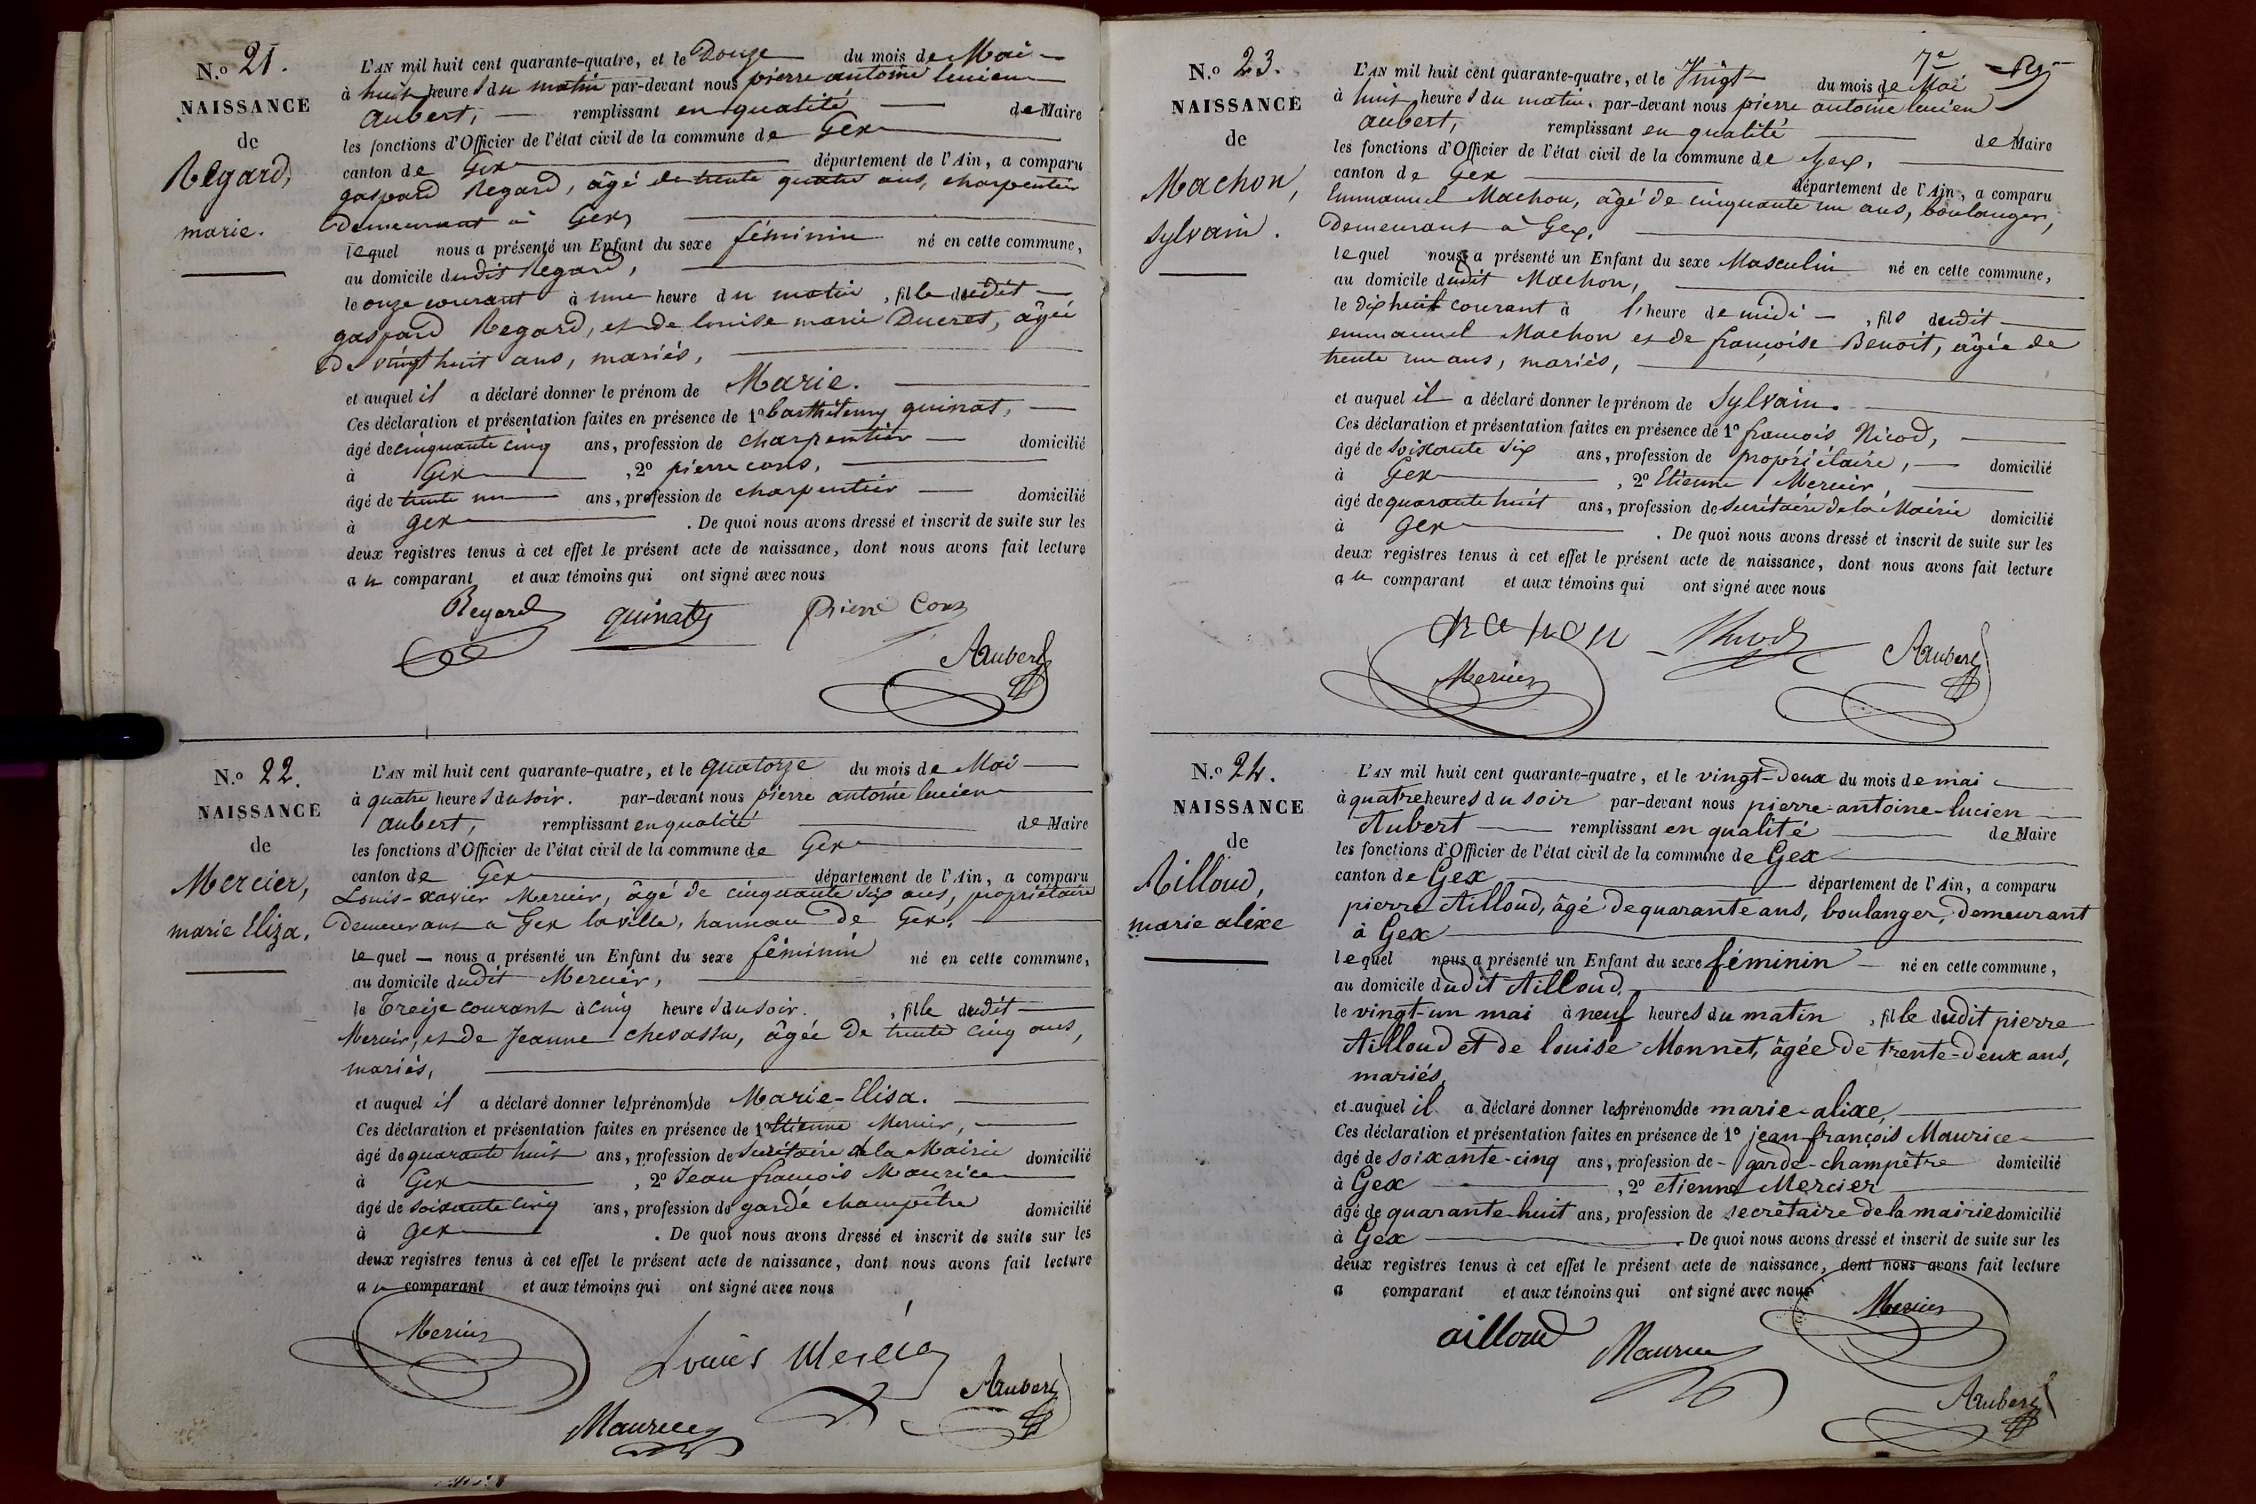 N.o 21.
NAISSANCE
de
Regard,
marie.
L'AN mil huit cent quarante-quatre, et le Douze du mois de Mai
à huit heures du matin par-devant nous pierre antoine lucien
aubert, remplissant en qualité de Maire
les fonctions d'Officier de l'état civil de la commune de Gex
canton de Gex département de l'Ain, a comparu
gaspard Regard, âgé de trente quatre ans, charpentier
Demeurant à Gex,
lequel nous a présenté un Enfant du sexe féminin né en cette commune,
au domicile dudit Regard,
le onze courant à une heure du matin, fille dudit
gaspard Regard, et de louise marie Ducret, âgée
de vingt huit ans, mariés,
et auquel il a déclaré donner le prénom de Marie.
Ces déclaration et présentation faites en présence de 1o barthélemy quinat,
âgé de cinquante cinq ans, profession de charpentier domicilié
à Gex, 2o pierre cons,
âgé de trente un ans, profession de charpentier domicilié
à gex. De quoi nous avons dressé et inscrit de suite sur les
deux registres tenus à cet effet le présent acte de naissance, dont nous avons fait lecture
au comparant et aux témoins qui ont signé avec nous
Regard quinat Pierre Cons
Aubert
N.o 22.
NAISSANCE
de
Mercier,
marie Eliza.
L'AN mil huit cent quarante-quatre, et le quatorze du mois de Mai
à quatre heures du soir. par-devant nous pierre antoine lucien
aubert, remplissant en qualité de Maire
les fonctions d'Officier de l'état civil de la commune de Gex
canton de Gex département de l'Ain, a comparu
Louis-xavier Mercier, âgé de cinquante six ans, propriétaire
Demeurant à Gex la ville, hameau de Gex,
lequel nous a présenté un Enfant du sexe féminin né en cette commune,
au domicile dudit Mercier,
le Treize courant à cinq heures du soir. , fille dudit
Mercier, et de Jeanne chevassu, âgée de trente cinq ans,
mariés,
et auquel il a déclaré donner les prénoms de Marie-Elisa.
Ces déclaration et présentation faites en présence de 1o Etienne Mercier,
âgé de quarante huit ans, profession de secrétaire de la Mairie domicilié
à Gex, 2o Jean françois Maurice
âgé de soixante cinq ans, profession de garde champêtre domicilié
à gex. De quoi nous avons dressé et inscrit de suite sur les
deux registres tenus à cet effet le présent acte de naissance, dont nous avons fait lecture
au comparant et aux témoins qui ont signé avec nous
Mercier
Louis Mercier
Aubert
Maurice
7e
N.o 23.
NAISSANCE
de
Machon,
Sylvain.
L'AN mil huit cent quarante-quatre, et le Vingt du mois de Mai
à huit heures du matin. par-devant nous pierre antoine lucien
aubert, remplissant en qualité de Maire
les fonctions d'Officier de l'état civil de la commune de Gex,
canton de Gex département de l'Ain, a comparu
Emmanuel Machon, âgé de cinquante un ans, boulanger,
Demeurant à Gex,
lequel nous a présenté un Enfant du sexe Masculin né en cette commune,
au domicile dudit Machon,
le dix huit courant à l'heure de midi, fils dudit
emmanuel Machon et de françoise Benoit, âgée de
trente un ans, mariés,
et auquel il a déclaré donner le prénom de Sylvain.
Ces déclaration et présentation faites en présence de 1o françois Nicod,
âgé de soixante six ans, profession de propriétaire, domicilié
à Gex, 2o Etienne Mercier,
âgé de quarante huit ans, profession de secrétaire de la Mairie domicilié
à gex. De quoi nous avons dressé et inscrit de suite sur les
deux registres tenus à cet effet le présent acte de naissance, dont nous avons fait lecture
au comparant et aux témoins qui ont signé avec nous
Nicod Aubert
Mercier
N.o 24.
NAISSANCE
de
Ailloud,
marie alixe
L'AN mil huit cent quarante-quatre, et le vingt-deux du mois de mai
à quatre heures du soir par-devant nous pierre-antoine-lucien
Aubert remplissant en qualité de Maire
les fonctions d'Officier de l'état civil de la commune de Gex
canton de Gex département de l'Ain, a comparu
pierre Ailloud, âgé de quarante ans, boulanger, demeurant
à Gex
lequel nous a présenté un Enfant du sexe féminin né en cette commune,
au domicile dudit Ailloud,
le vingt-un mai à neuf heures du matin, fille dudit pierre
Ailloud et de louise Monnet, âgée de trente-deux ans,
mariés,
et auquel il a déclaré donner les prénoms de marie-alixe,
Ces déclaration et présentation faites en présence de 1o jean-françois Maurice
âgé de soixante-cinq ans, profession de garde-champêtre domicilié
à Gex, 2o etienne Mercier
âgé de quarante-huit ans, profession de secrétaire de la mairie domicilié
à Gex. De quoi nous avons dressé et inscrit de suite sur les
deux registres tenus à cet effet le présent acte de naissance, dont nous avons fait lecture
a comparant et aux témoins qui ont signé avec nous
Mercier
ailloud Maurice
Aubert